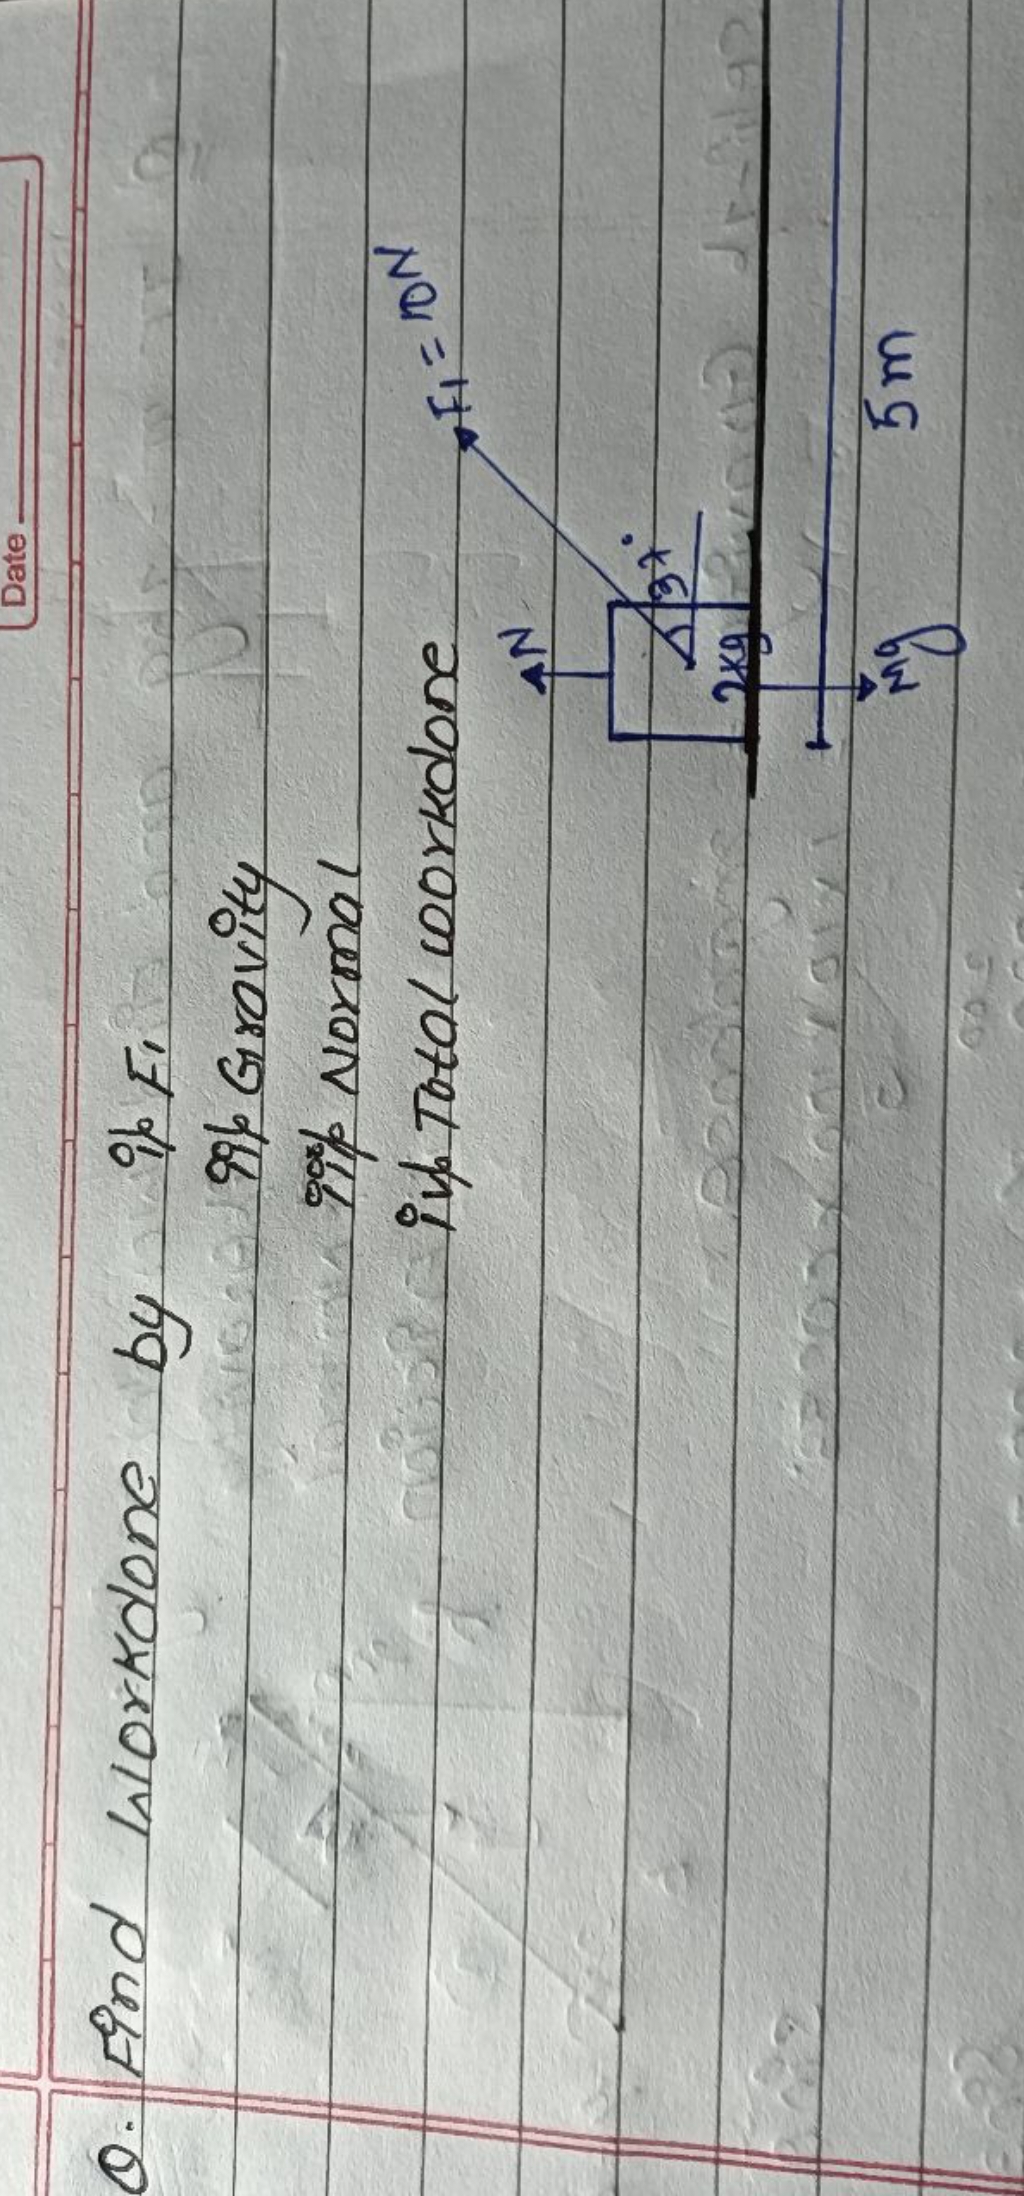 Date
Q. Find Workdone by i) F1
ii) Gravity
iii) Normal
iv) Total workdone
N
F1 = 10N
37°
2kg
Mg
5m